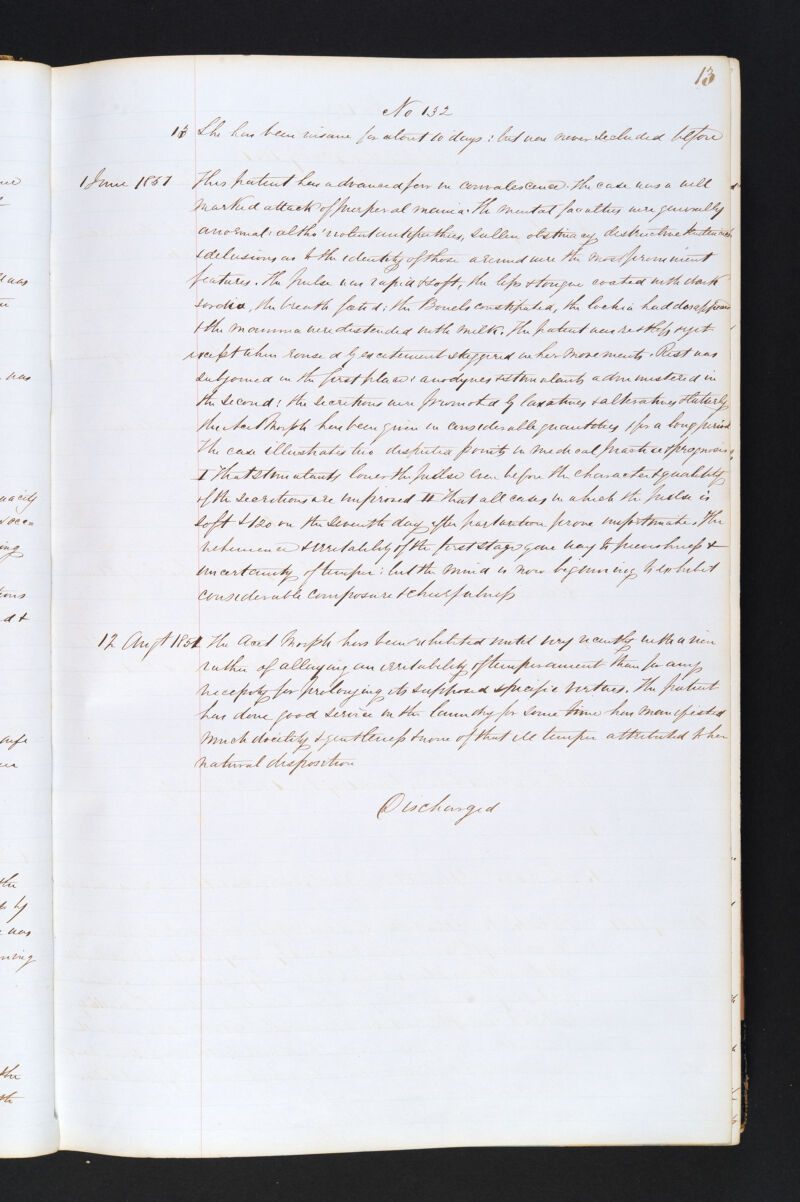 13
No 132
13 She has been insane for about 10 days: but was never secluded before
1 June 1851 This patient has advanced far in convalescence. The case was a well
marked attack of Puerperal mania. The mental faculties were generally
anormal: altho' violent antipathies, sullen obstinacy, destructive
& delusions as to the identity of those around were the most prominent
features. The pulse was rapid & soft, the lips & tongue coated with dark
sordes, the breath fœted: the Bowels constipated, the lochia had
& the mamma were distended with milk. The patient was restless & yet
except when roused by excitement staggered in her movements. Rest was
enjoined in the first place: anodynes & stimulants administered in
the second: the secretions were promoted by laxatives & alteratives & latterly
the Acet Morph has been given in considerable quantities & for a long period
The case illustrates two disputed points in medical practice & prognosis.
I That stimulants lower the pulse even before the character & quality
of the secretions are improved II That all cases in which the pulse is
soft & 120 on the seventh day after parturition prove unfortunate. The
vehemence & irritability of the first stage gave way to peevishness &
uncertainty of temper: but the mind is now beginning to exhibit
considerable composure & chearfulness
12 Augt 1851 The Acet Morph has been exhibited until very recently with a view
rather of allaying an irritability of temperament than for any
necessity for prolonging its supposed specific virtues. The patient
has done good service in the laundry for some time has manifested
much docility & gentleness & none of that ill temper attributed to her
natural disposition
Discharged